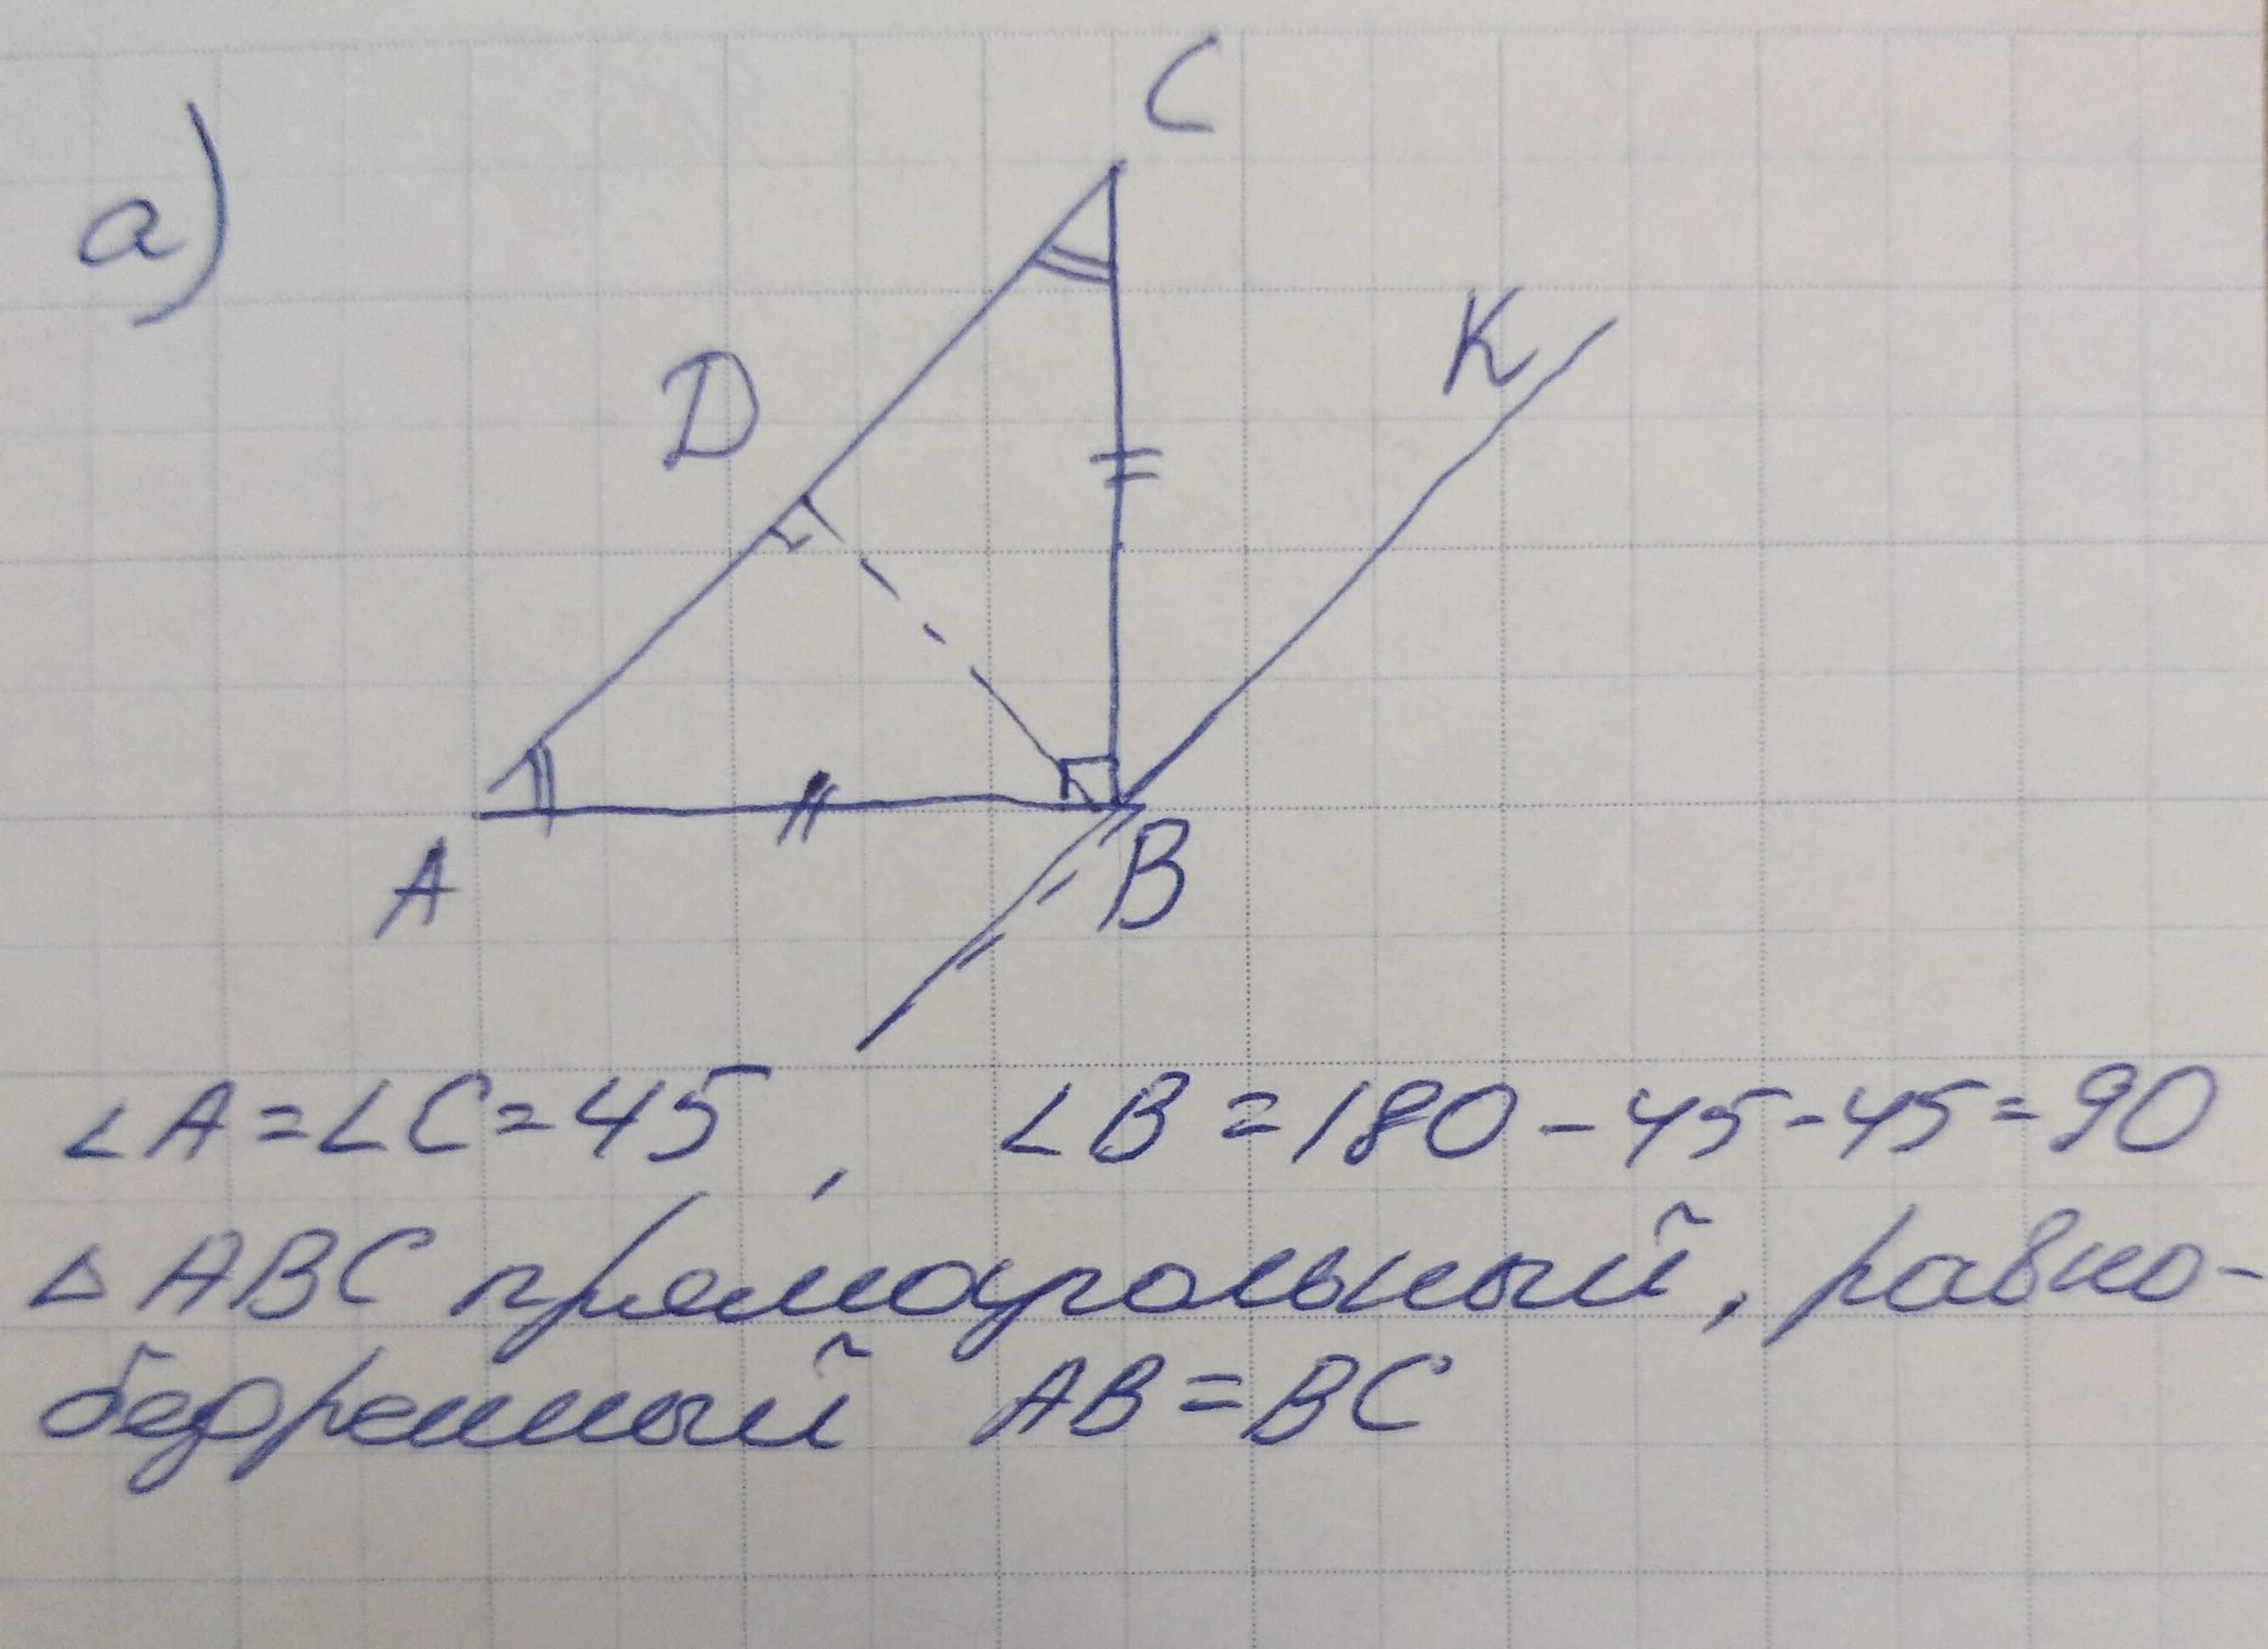 а)
C
K
D
A
B
∠A=∠C=45, ∠B=180-45-45=90
△ABC прямоугольный, равно-
бедренный AB=BC